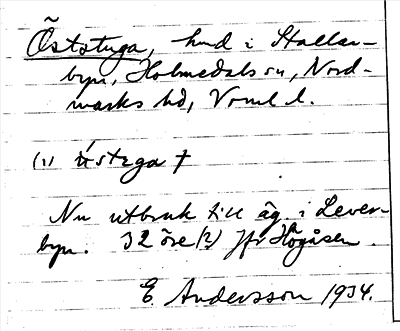 Öststuga, hmd i Stallar-
byn, Holmedals sn, Nord-
marks hd, Vrml l.
(1) ùstuga †
Nu utbruk till äg. i Lever-
byn. 32 öre (?) Jfr Högåsen.
E. Andersson 1934.